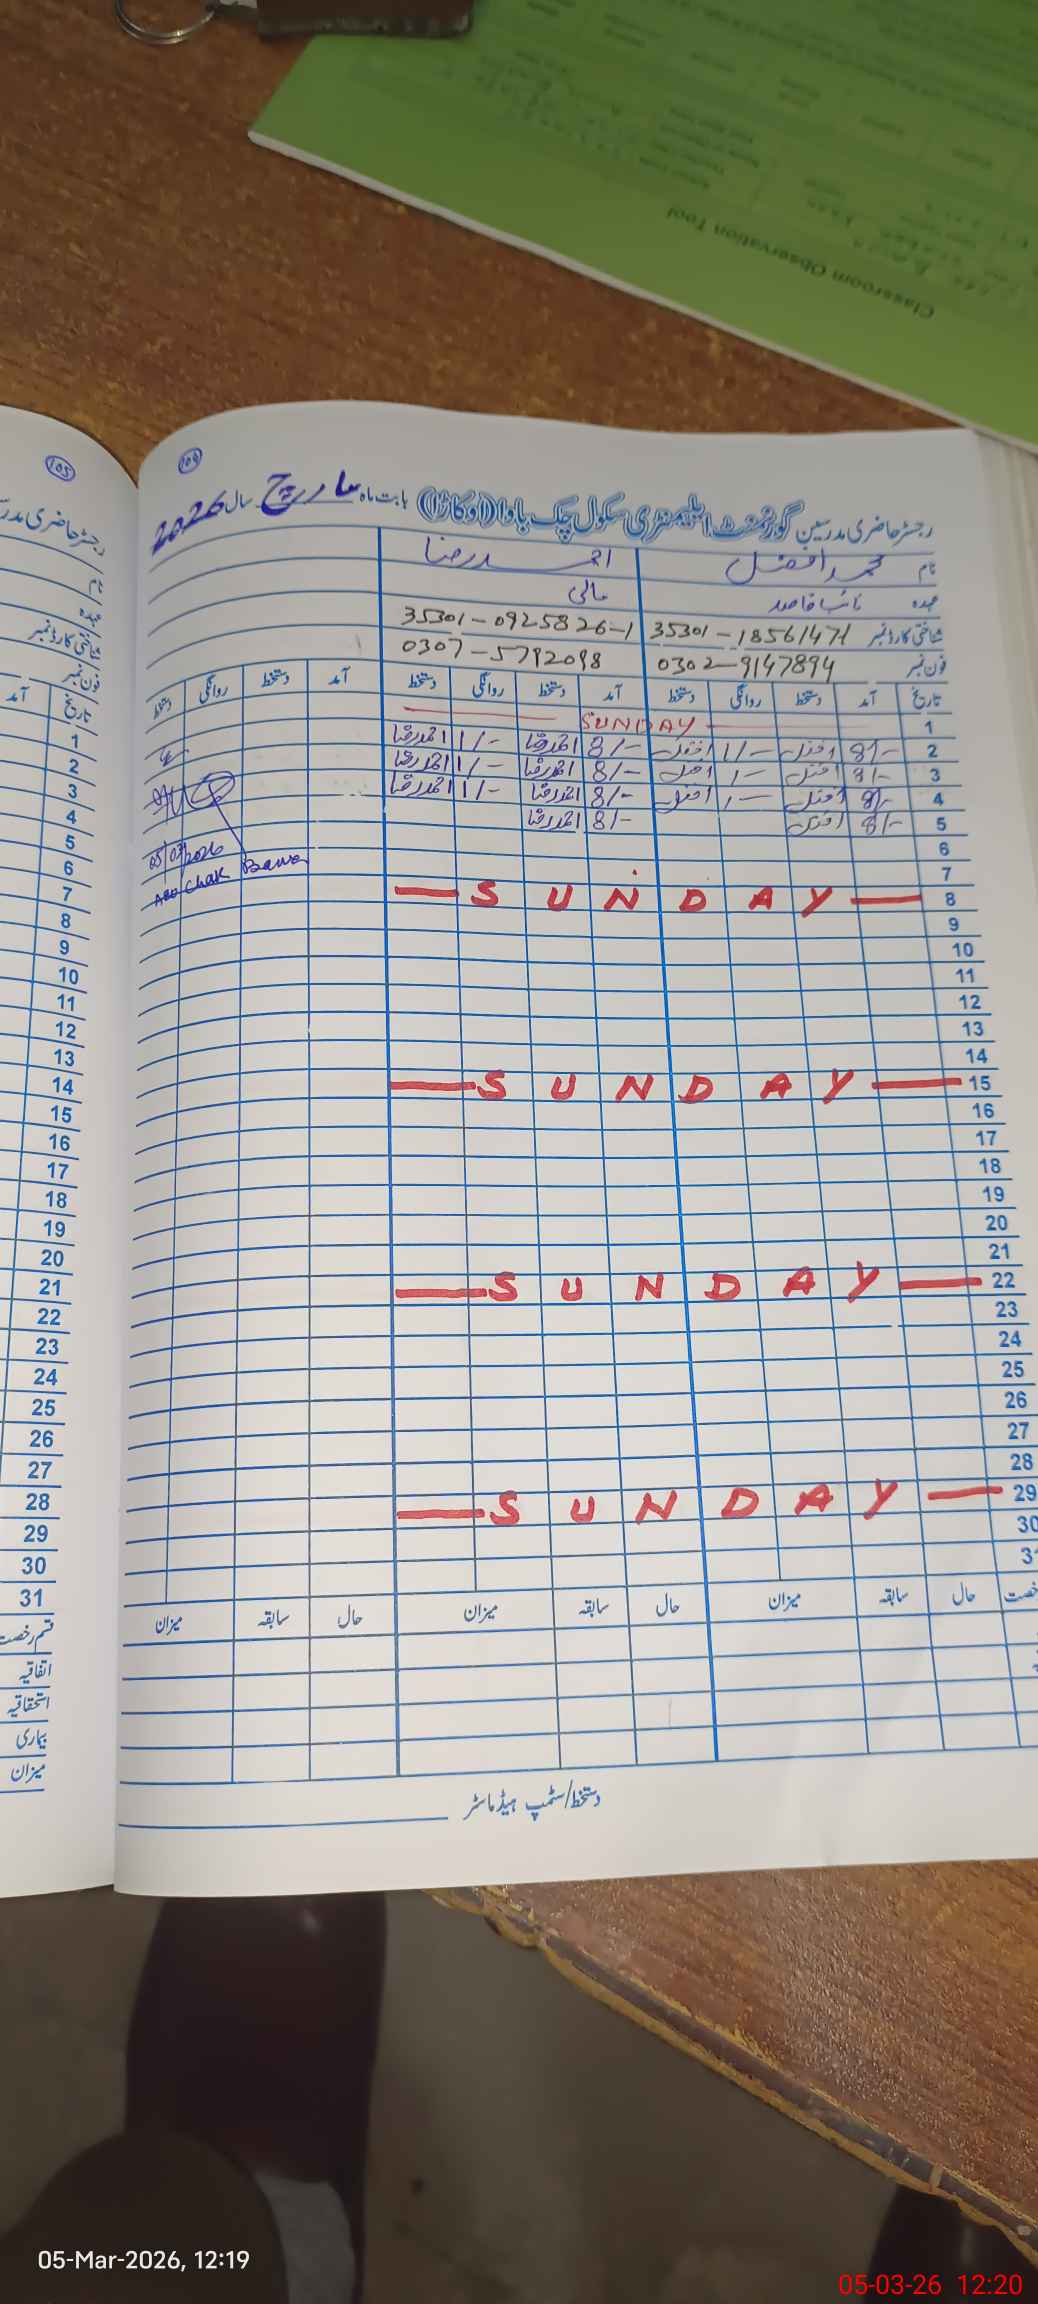 Classroom Observation Tool
105
109
رجسٹر حاضری مدرسین گورنمنٹ ایلیمنٹری سکول چک باوا (اوکاڑا) بابت ماہ مارچ سال 2026
نام محمد افضل احمد رضا
عہدہ نائب قاصد مالی
شناختی کارڈ نمبر 35301-18561471 35301-0925826-1
فون نمبر 0302-9147894 0307-5792098
تاریخ آمد دستخط روانگی دستخط آمد دستخط روانگی دستخط آمد دستخط روانگی دستخط
1 SUNDAY
2 8/- افضل 1/- افضل 8/- احمد رضا 1/- احمد رضا
3 8/- افضل 1- افضل 8/- احمد رضا 1/- احمد رضا
4 8/- افضل 1- افضل 8/- احمد رضا 1/- احمد رضا
5 8/- افضل 8/- احمد رضا
05/03/2026
6
AEO Chak Bawa
7
8 SUNDAY
9
10
11
12
13
14
15 SUNDAY
16
17
18
19
20
21
22 SUNDAY
23
24
25
26
27
28
29 SUNDAY
30
حال سابقہ میزان حال سابقہ میزان حال سابقہ میزان
دستخط/سٹمپ ہیڈماسٹر
رجسٹر حاضری مدر
نام
عہدہ
شناختی کارڈ نمبر
فون نمبر
تاریخ آمد
1
2
3
4
5
6
7
8
9
10
11
12
13
14
15
16
17
18
19
20
21
22
23
24
25
26
27
28
29
30
31
قسم رخصت
اتفاقیہ
استحقاقیہ
بیماری
میزان
05-Mar-2026, 12:19
05-03-26 12:20